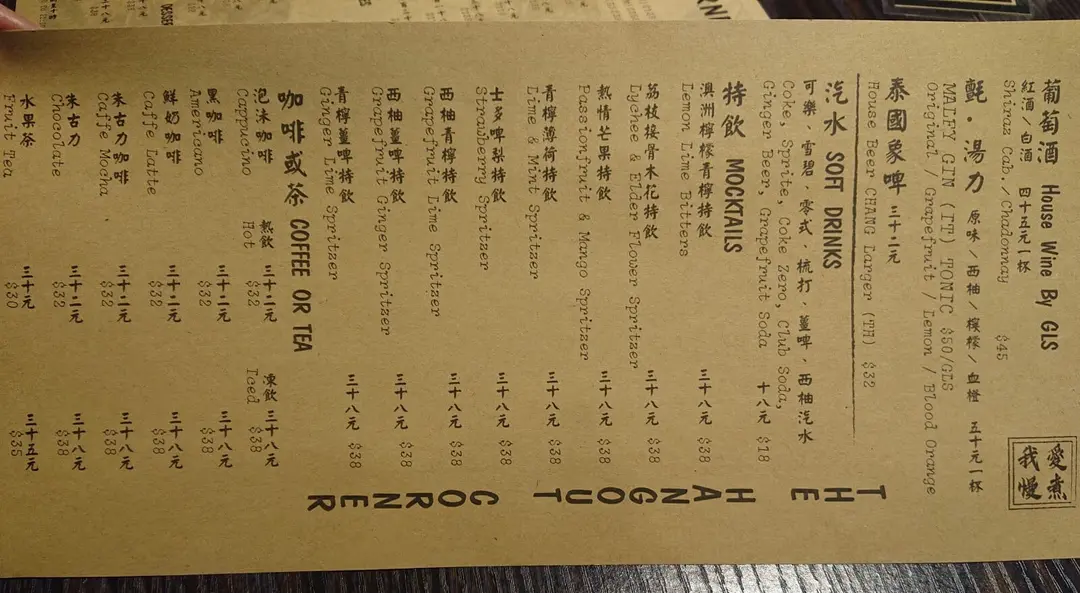 葡萄酒 House Wine By GLS
紅酒／白酒 四十五元一杯
Shiraz Cab./Chadonnay $45
氈・湯力 原味／西柚／檸檬／血橙 五十元一杯
MALFY GIN (IT) TONIC $50/GLS
Original / Grapefruit / Lemon / Blood Orange
泰國象啤 三十二元
House Beer CHANG Larger (TH) $32
汽水 SOFT DRINKS
可樂，雪碧，零式，梳打，薑啤，西柚汽水
Coke, Sprite, Coke Zero, Club Soda,
Ginger Beer, Grapefruit Soda 十八元 $18
特飲 MOCKTAILS
澳洲檸檬青檸特飲 三十八元
Lemon Lime Bitters $38
荔枝接骨木花特飲 三十八元
Lychee & Elder Flower Spritzer $38
熱情芒果特飲 三十八元
Passionfruit & Mango Spritzer $38
青檸薄荷特飲 三十八元
Lime & Mint Spritzer $38
士多啤梨特飲 三十八元
Strawberry Spritzer $38
西柚青檸特飲 三十八元
Grapefruit Lime Spritzer $38
西柚薑啤特飲 三十八元
Grapefruit Ginger Spritzer $38
青檸薑啤特飲 三十八元
Ginger Lime Spritzer $38
咖啡或茶 COFFEE OR TEA
熱飲 凍飲
Hot Iced
泡沫咖啡 三十二元 三十八元
Cappucino $32 $38
黑咖啡 三十二元 三十八元
Americano $32 $38
鮮奶咖啡 三十二元 三十八元
Caffe Latte $32 $38
朱古力咖啡 三十二元 三十八元
Caffe Mocha $32 $38
朱古力 三十二元 三十八元
Chocolate $32 $38
水果茶 三十元 三十五元
Fruit Tea $30 $35
愛煮
我慢
THE HANGOUT CORNER